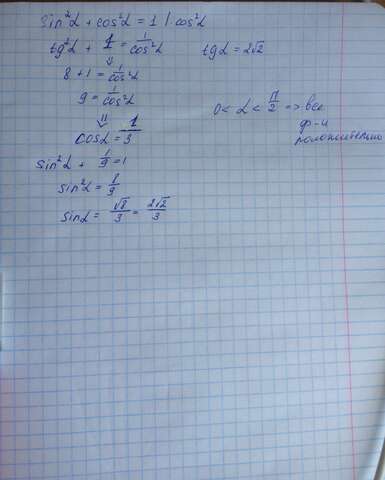 sin²α + cos²α = 1 | cos²α
tg²α + 1 = 1/cos²α
tgα = 2√2
⇓
8 + 1 = 1/cos²α
9 = 1/cos²α
0 < α < π/2 => все
ф-и
положительно
⇓
cosα = 1/3
sin²α + 1/9 = 1
sin²α = 8/9
sinα = √8/3 = 2√2/3